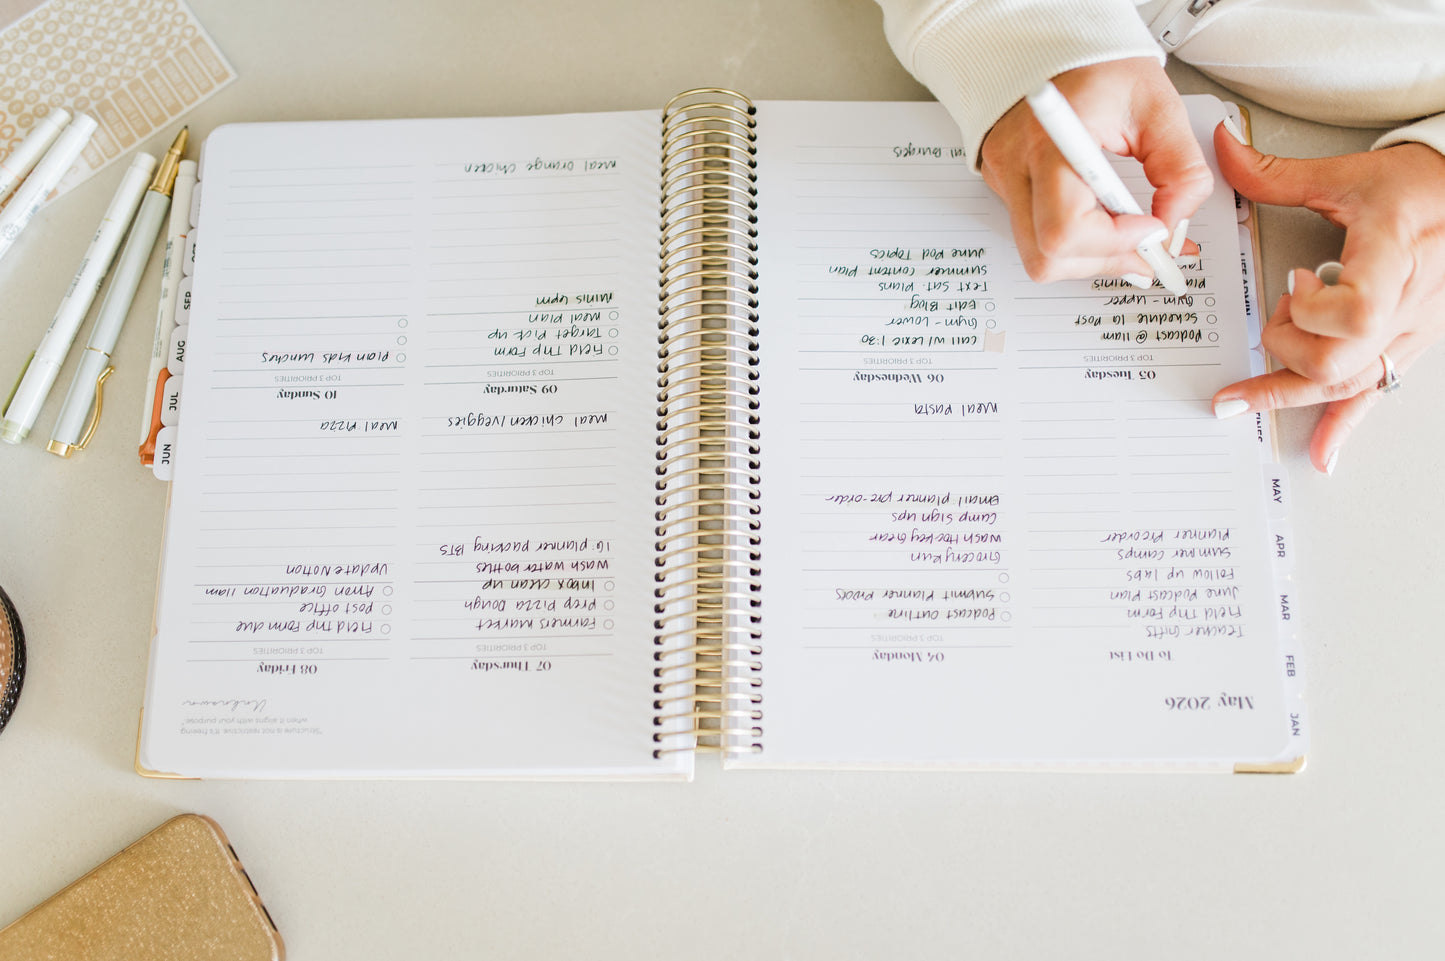 May 2026
To Do List
Teacher Gifts
Field Trip Form
June Podcast Plan
Follow up Labs
Summer Camps
Planner Preorder
04 Monday
TOP 3 PRIORITIES
Podcast Outline
Submit Planner Proofs
Grocery Run
Wash Hockey Gear
Camp Sign Ups
Email planner pre-order
Meal Pasta
05 Tuesday
TOP 3 PRIORITIES
Podcast @ 11am
Schedule IG Post
Gym - Upper
minis
06 Wednesday
TOP 3 PRIORITIES
Call w/ Lexie 1:30
Gym - Lower
Edit Blog
Text Sat. Plans
Summer Content Plan
June Pod Topics
"Structure is not restrictive. It's freeing
when it aligns with your purpose."
Unknown
07 Thursday
TOP 3 PRIORITIES
Farmers Market
Prep Pizza Dough
Inbox clean up
Wash water bottles
IG: planner packing BTS
Meal Chicken/Veggies
08 Friday
TOP 3 PRIORITIES
Field Trip Form due
Post office
Graduation 11am
Update Notion
Meal: Pizza
09 Saturday
TOP 3 PRIORITIES
Field Trip Form
Target Pick up
Meal plan
Minis 6pm
Meal Orange Chicken
10 Sunday
TOP 3 PRIORITIES
Plan Kids Lunches
JAN
FEB
MAR
APR
MAY
JUN
JUL
AUG
SEP
OCT